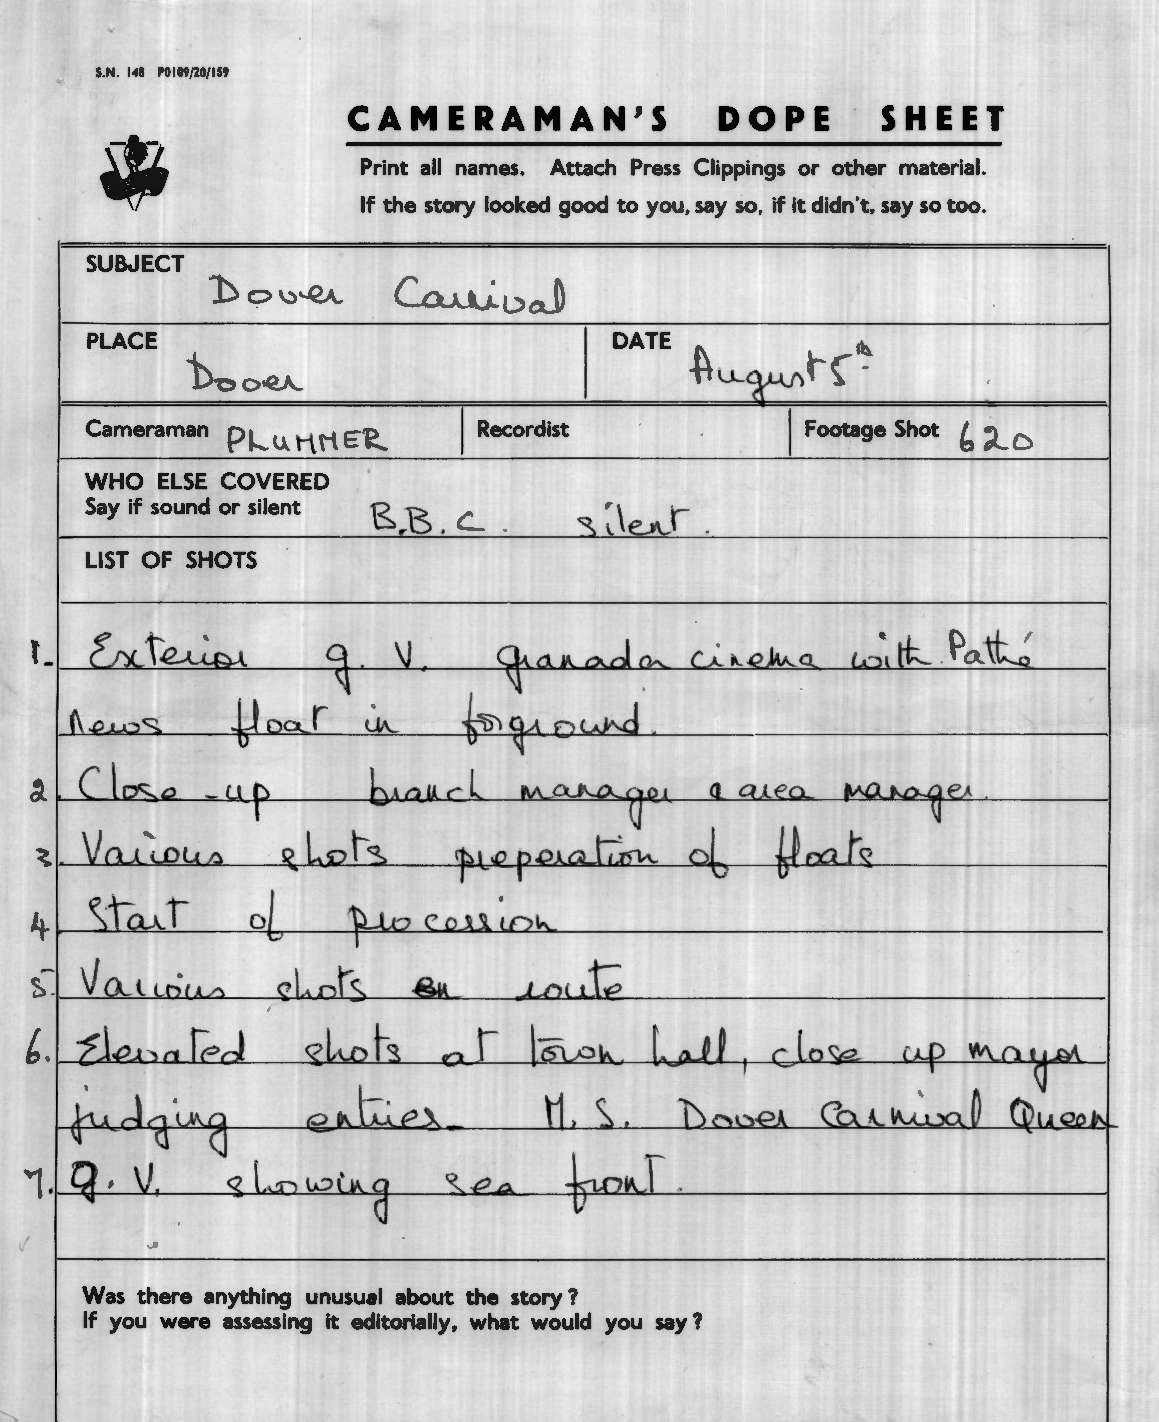 S.N. 148 P0109/20/159
CAMERAMAN'S DOPE SHEET
Print all names. Attach Press Clippings or other material.
If the story looked good to you, say so, if it didn't, say so too.
SUBJECT
Dover Carnival
PLACE
Dover
DATE
August 5th
Cameraman PLUMMER
Recordist
Footage Shot 620
WHO ELSE COVERED
Say if sound or silent
B.B.C. silent.
LIST OF SHOTS
1. Exterior g. V. granada cinema with Pathé
news float in forground.
2. Close-up branch manager & area manager.
3. Various shots preperation of floats
4. Start of procession
5. Various shots en route
6. Elevated shots at town hall, close up mayor
judging entries- M.S. Dover Carnival Queen
7. g. V. showing sea front.
Was there anything unusual about the story?
If you were assessing it editorially, what would you say?